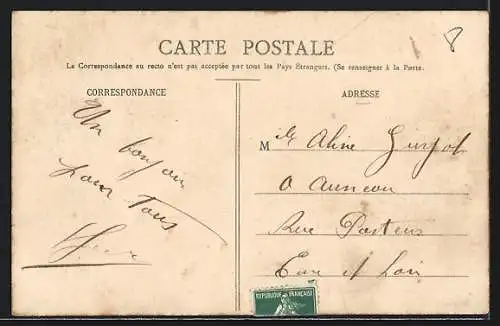 8
CARTE POSTALE
La Correspondance au recto n'est pas acceptée par tous les Pays Étrangers. (Se renseigner à la Poste.
CORRESPONDANCE
ADRESSE
Un bonjour
pour Tous
Mlle Aline
a Auneau
Rue Pasteur
Eure et Loir
REPUBLIQUE FRANÇAISE